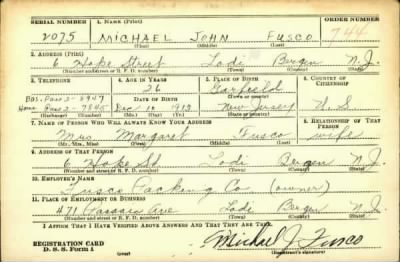 SERIAL NUMBER 1. NAME (Print) ORDER NUMBER
2075 MICHAEL JOHN FUSCO 744
(First) (Middle) (Last)
2. ADDRESS (Print)
6 Hoke Street Lodi Bergen N.J.
(Number and street or R. F. D. number) (Town) (County) (State)
3. TELEPHONE 4. AGE IN YEARS 5. PLACE OF BIRTH 6. COUNTRY OF CITIZENSHIP
Bus. Pass 2-2947 26 Garfield
DATE OF BIRTH (Town or county)
Pass 2-7845 Dec 10 1913 New Jersey U.S.
(Mo.) (Day) (Yr.) (State or country)
7. NAME OF PERSON WHO WILL ALWAYS KNOW YOUR ADDRESS 8. RELATIONSHIP OF THAT PERSON
Mrs Margaret Fusco wife
(Mr., Mrs., Miss) (First) (Middle) (Last)
9. ADDRESS OF THAT PERSON
6 Hoke St Lodi Bergen N.J.
(Number and street or R. F. D. number) (Town) (County) (State)
10. EMPLOYER'S NAME
Fusco Packing Co (owner)
11. PLACE OF EMPLOYMENT OR BUSINESS
471 Passaic Ave Lodi Bergen N.J.
(Number and street or R. F. D. number) (Town) (County) (State)
I AFFIRM THAT I HAVE VERIFIED ABOVE ANSWERS AND THAT THEY ARE TRUE.
REGISTRATION CARD
D. S. S. Form 1
Michael J. Fusco
(Registrant's signature)